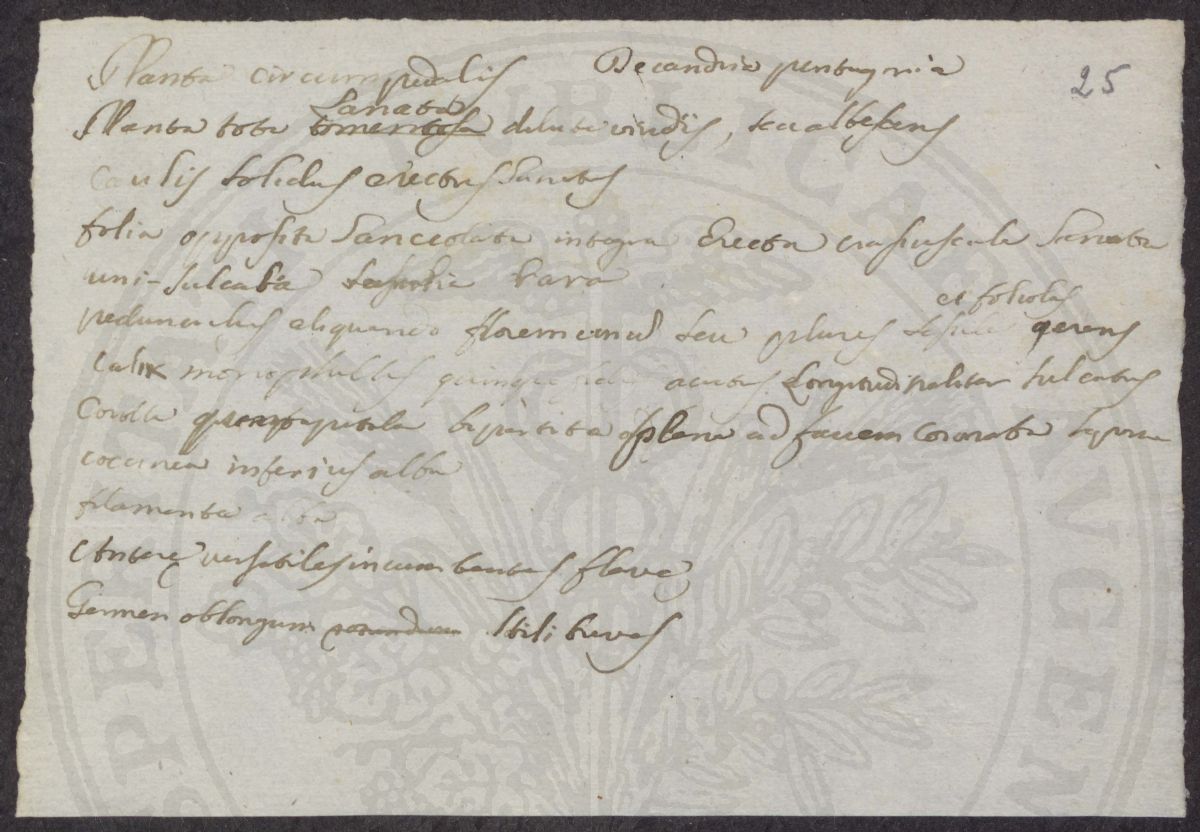 Planta circumpedalis Decandria pentagynia
25
Lanata
Planta tota tomentosa dilute viridis, seu albescens
Caulis solidus erectus lanatus
folia opposita lanceolata integra Erecta crasiuscula lanata
uni-sulcata rara
et foliolis
pedunculus aliquando florem unum seu plures gerens
Calix monophyllus quinque acutus Longitudinaliter sulcatus
Corolla quinquepetala bipartita plana ad faucem coronata
coccinea inferius alba
filamenta alba
Antere versatiles incumbentes flave
Germen oblongum rotundum stili breves